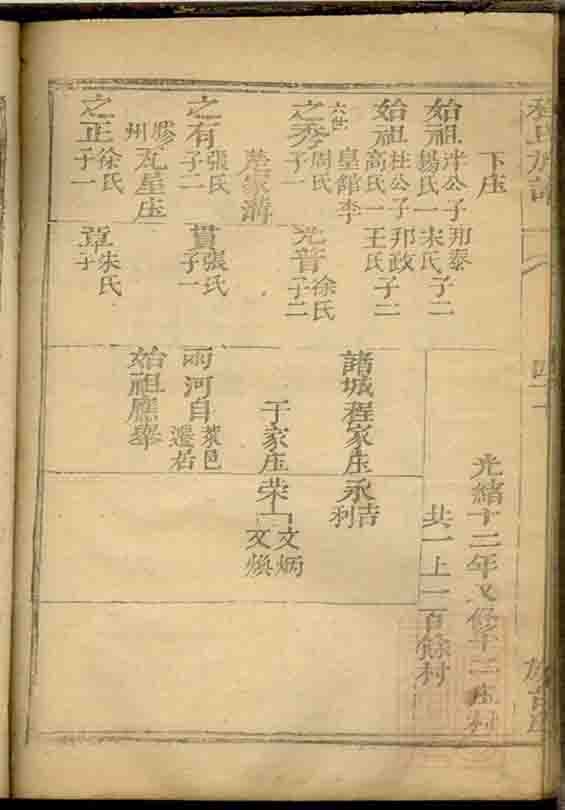 程氏族譜
下庄
始祖泮公子邦泰
楊氏一宋氏子二
始祖柱公子邦政
高氏一王氏子二
皇館李
六世
之秀周氏子一
光普徐氏子二
之有張氏子二
貫張氏子一
膠州瓦屋庄
之正徐氏子一
章朱氏子一
光緒十二年又修
共一上一百餘村
諸城程家庄永吉利
于家庄榮
文炳
文煥
雨河自萊邑遷居
始祖應舉